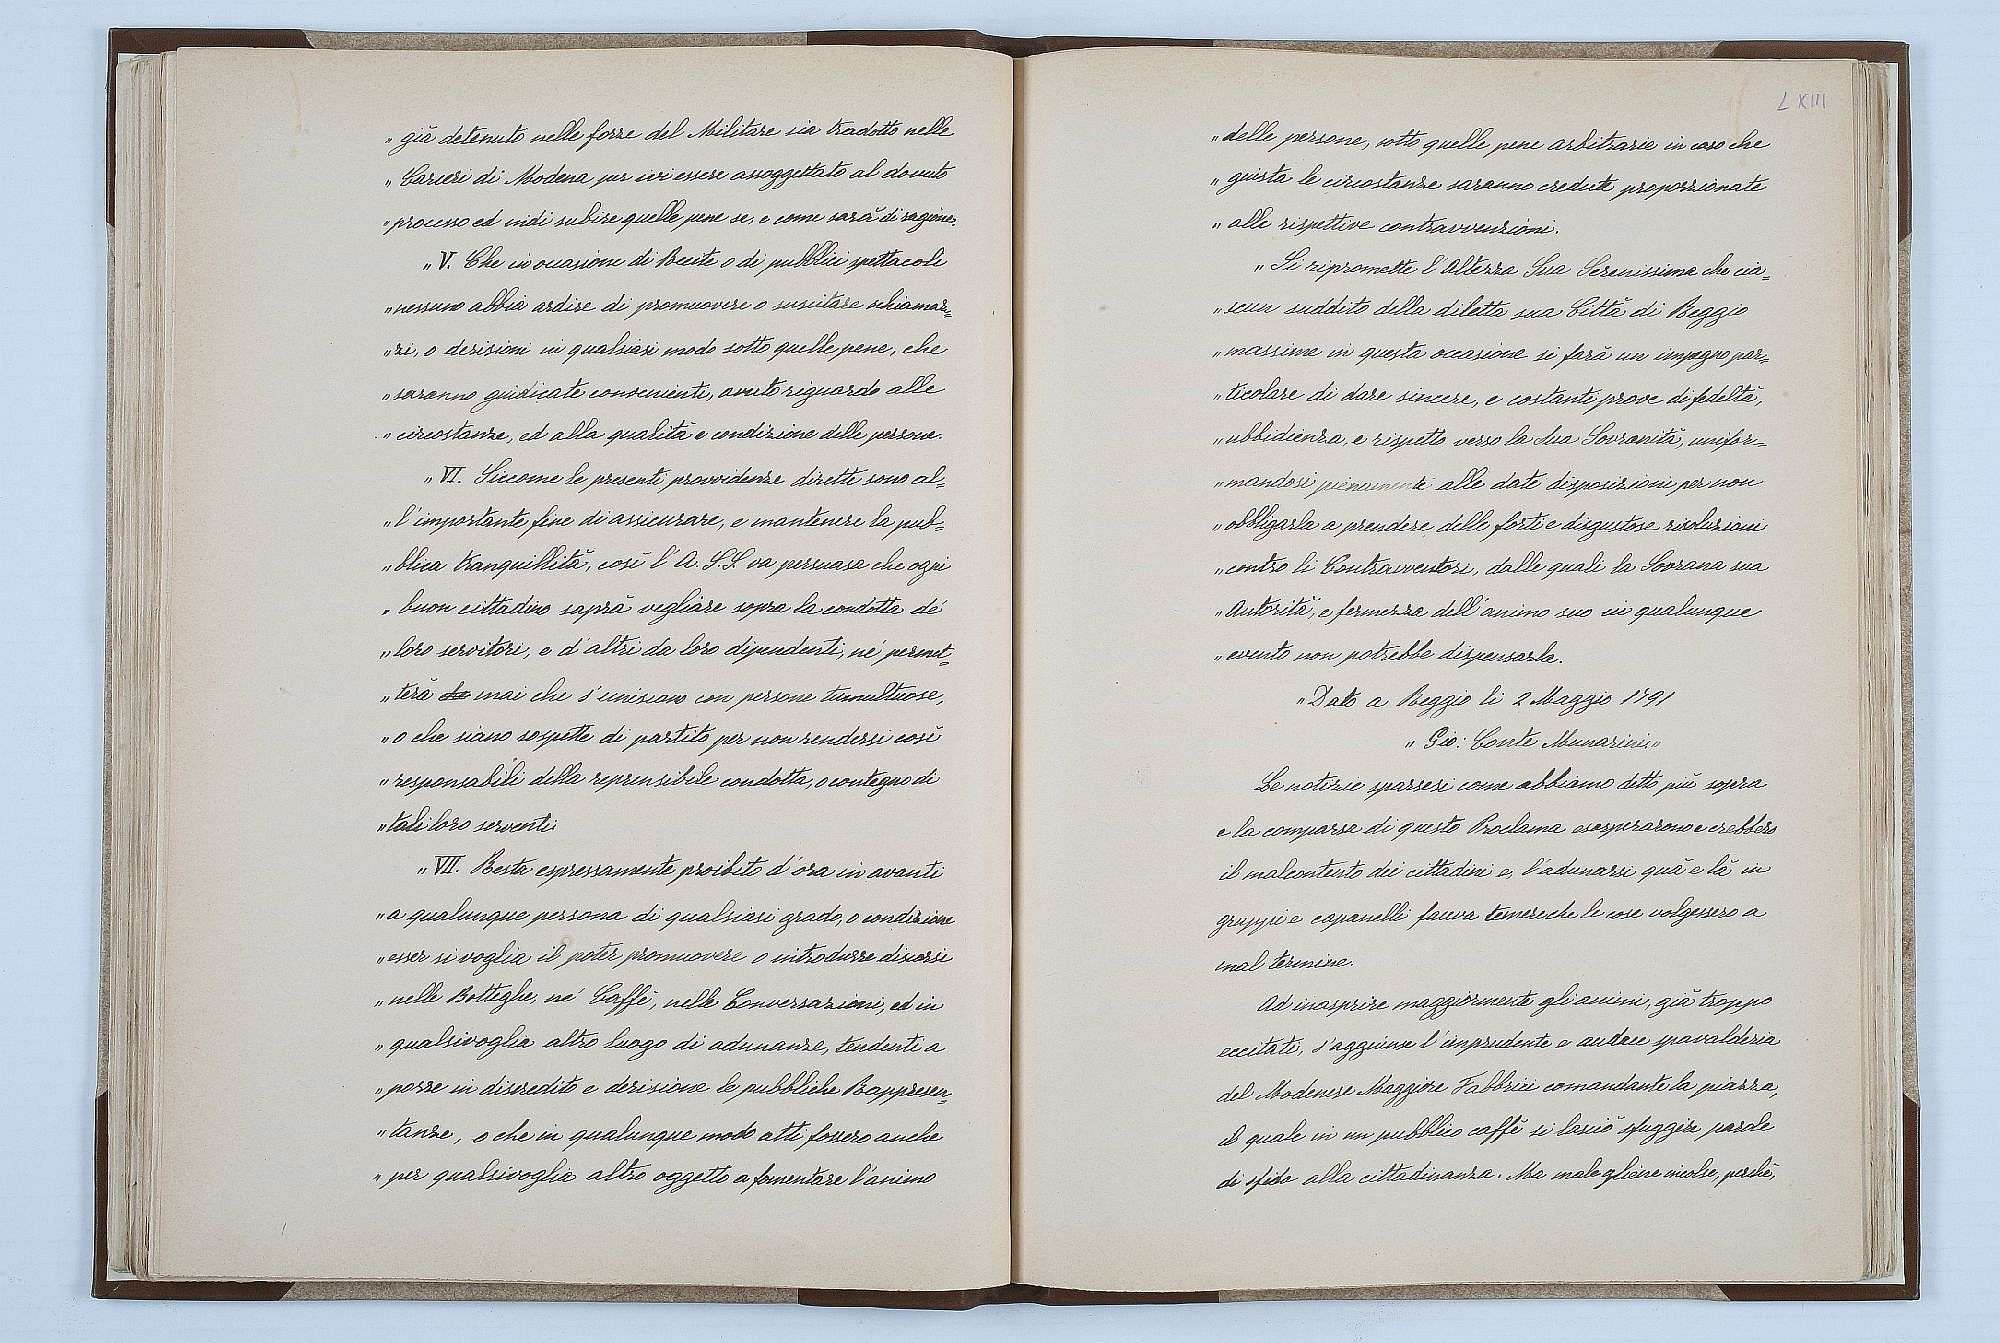 „ già detenuto nelle forze del Militare sia tradotto nelle
„ Carceri di Modena per ivi essere assoggettato al dovuto
„ processo ed indi subire quelle pene se, e come sarà di ragione.
„ V. Che in occasione di Recite o di pubblici spettacoli
„ nessuno abbia ardire di promuovere o suscitare schiamaz=
„ zi, o derisioni in qualsiasi modo sotto quelle pene, che
„ saranno giudicate convenienti, avuto riguardo alle
„ circostanze, ed alla qualità e condizione delle persone.
„ VI. Siccome le presenti provvidenze dirette sono al=
„ l'importante fine di assicurare, e mantenere la pub=
„ blica tranquillità, così l'A. S. S. va persuasa che ogni
„ buon cittadino saprà vegliare sopra la condotta de'
„ loro servitori, e d'altri da loro dipendenti, nè permet=
„ terà che mai che s'uniscano con persone tumultuose,
„ o che siano sospette di partito per non rendersi così
„ responsabili della reprensibile condotta, o contegno di
„ tali loro serventi.
„ VII. Resta espressamente proibito d'ora in avanti
„ a qualunque persona di qualsiasi grado, o condizione
„ esser si voglia il poter promuovere o introdurre discorsi
„ nelle Botteghe, ne' Caffè, nelle Conversazioni, ed in
„ qualsivoglia altro luogo di adunanze, tendenti a
„ porre in discredito e derisione le pubbliche Rappresen=
„ tanze, o che in qualunque modo atti fossero anche
„ per qualsivoglia altro oggetto a fomentare l'animo
LXIII
„ delle persone, sotto quelle pene arbitrarie in caso che
„ giusta le circostanze saranno credute proporzionate
„ alle rispettive contravvenzioni.
„ Si ripromette l'Altezza Sua Serenissima che cia=
„ scun suddito della diletta sua Città di Reggio
„ massime in questa occasione si farà un impegno par=
„ ticolare di dare sincere, e costanti prove di fedeltà,
„ ubbidienza, e rispetto verso la Sua Sovranità, unifor=
„ mandosi pienamente alle date disposizioni per non
„ obbligarla a prendere delle forti e disgustose risoluzioni
„ contro li Contravventori, dalle quali la Sovrana sua
„ Autorità, e fermezza dell'animo suo in qualunque
„ evento non potrebbe dispensarla.
„ Dato a Reggio li 2 Maggio 1791
„ Gio: Conte Munarini„
Le notizie sparsesi come abbiamo detto più sopra
e la comparsa di questo Proclama esasperarono e crebbero
il malcontento dei cittadini e, l'adunarsi quà e là in
gruppi e capanelli faceva temere che le cose volgessero a
mal termine.
Ad inasprire maggiormente gli animi, già troppo
eccitati, s'aggiunse l'imprudente e audace spavalderia
del Modenese Maggiore Fabbrici comandante la piazza,
il quale in un pubblico caffè si lasciò sfuggire parole
di sfida alla cittadinanza. Ma male gliene incolse, perchè,